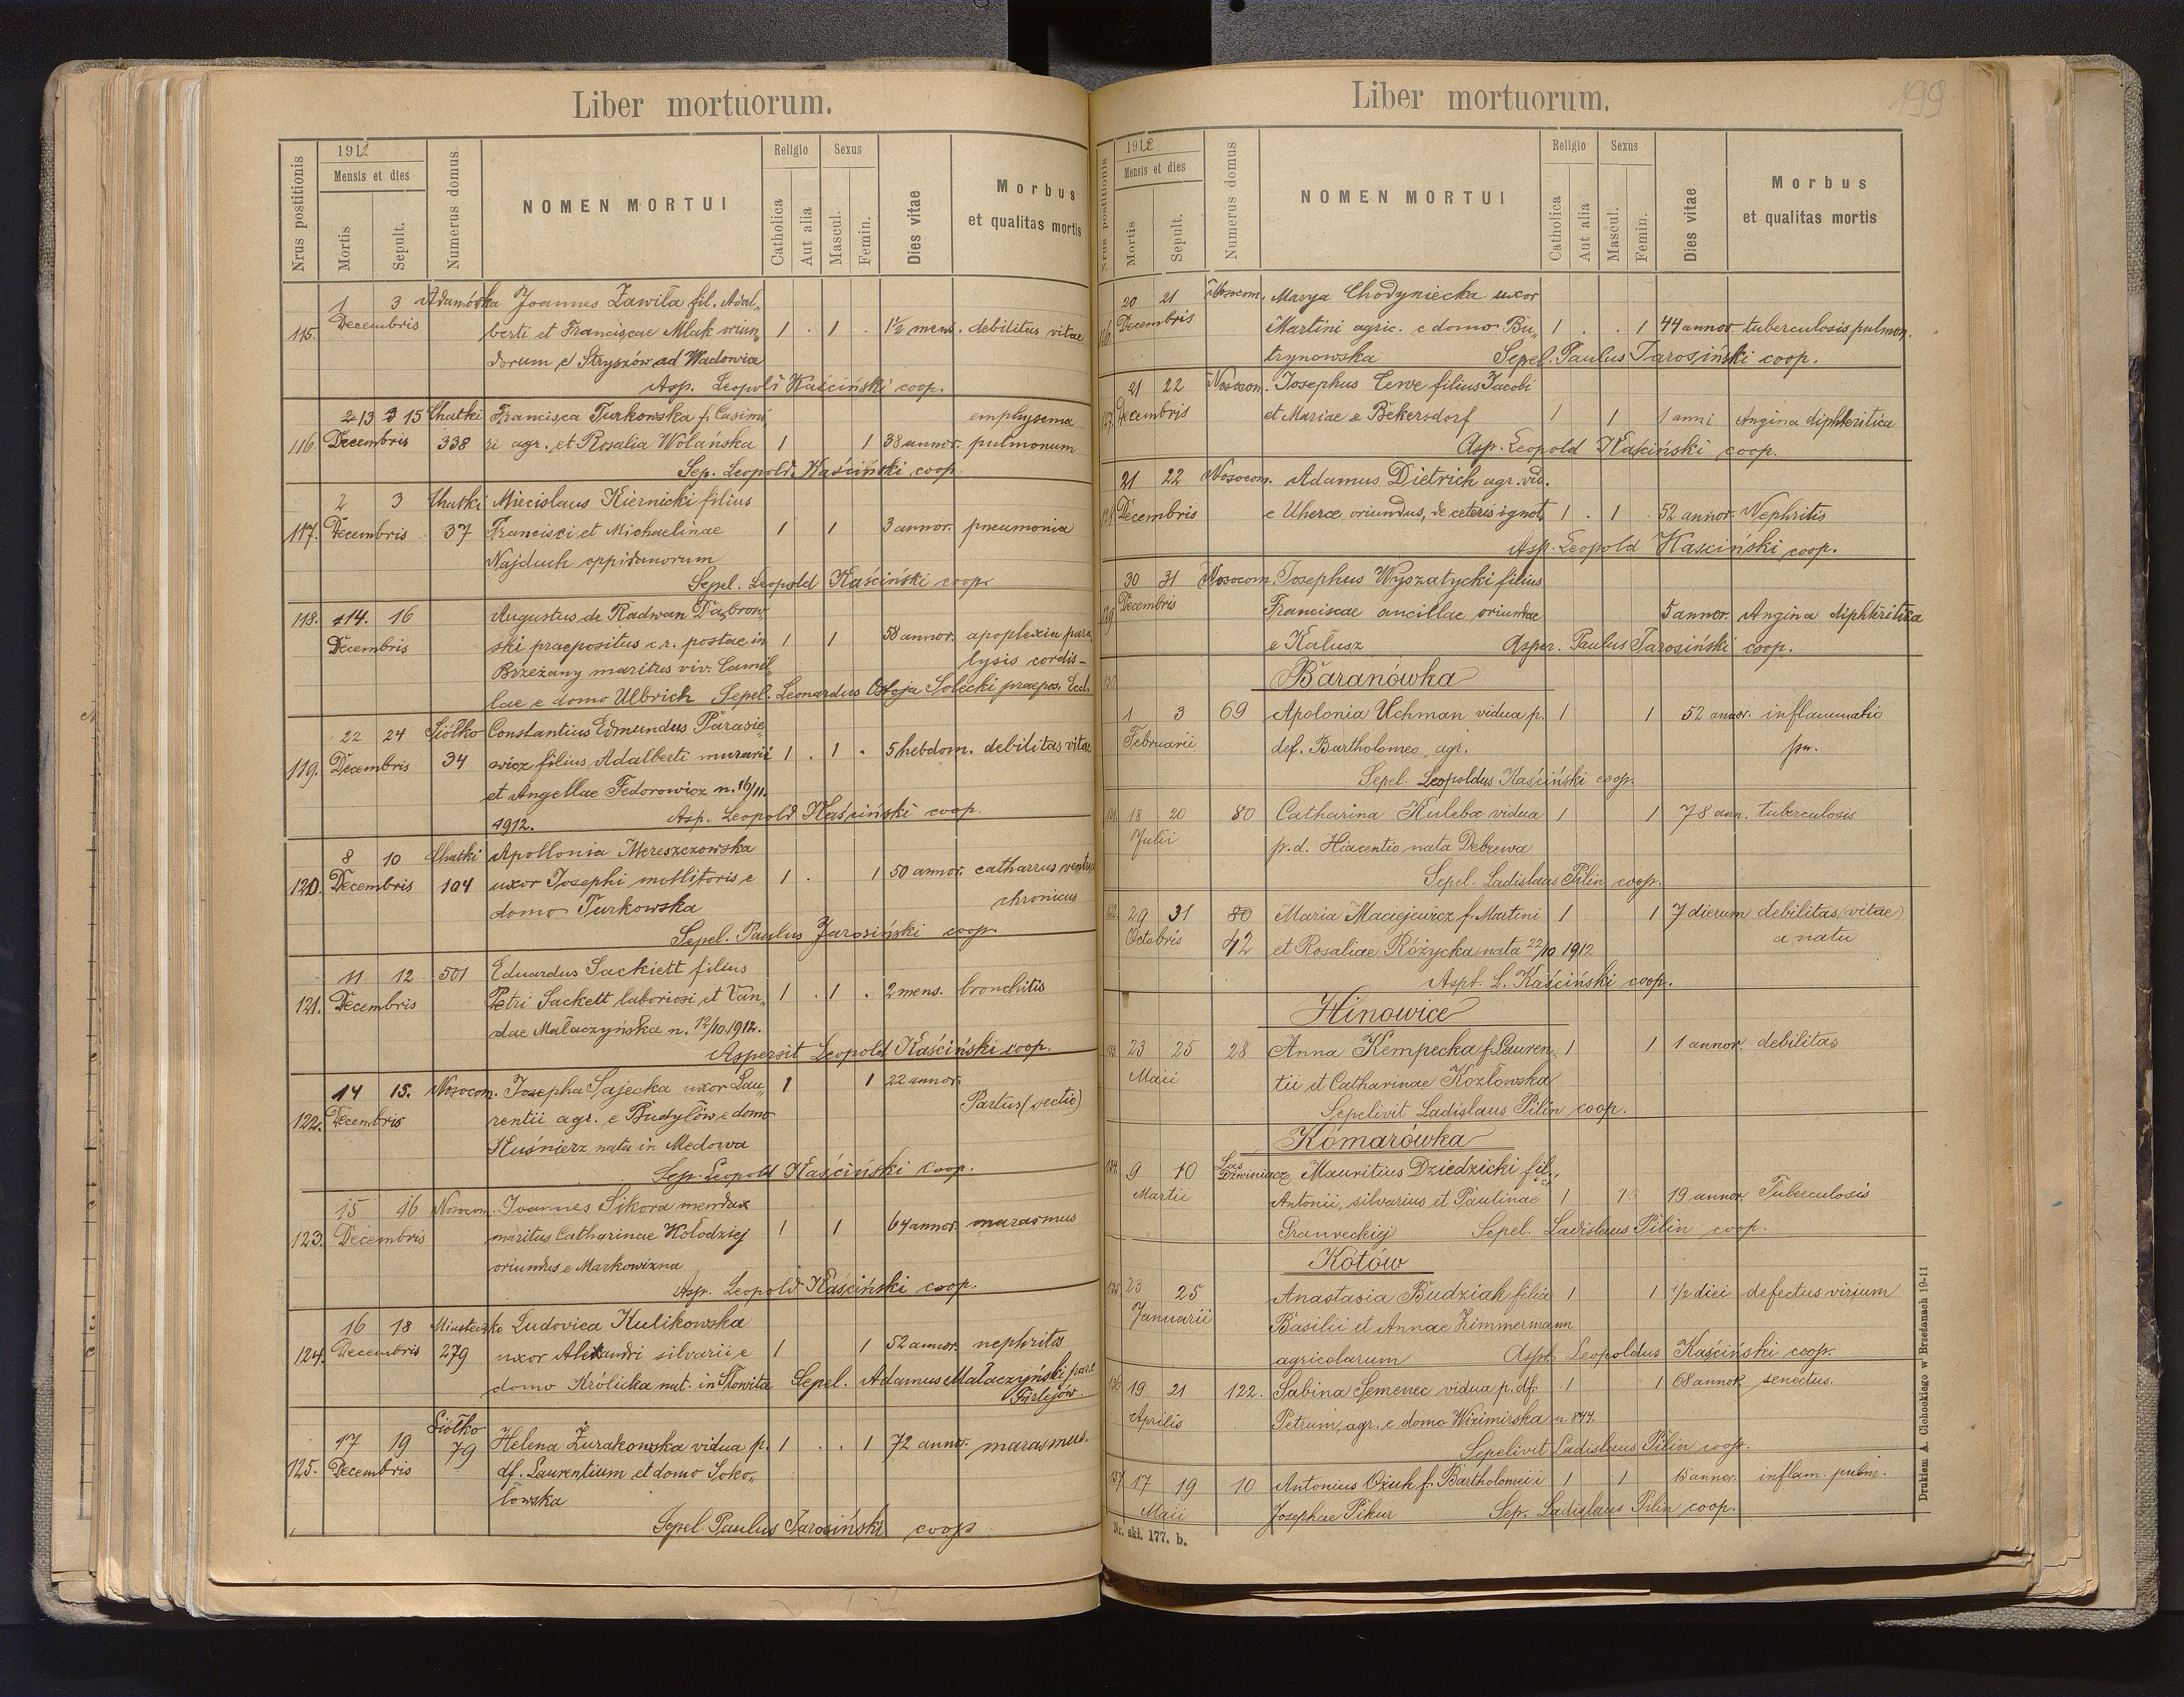 Liber mortuorum.
Nrus postitionis
1912
Mensis et dies
Mortis
Sepult.
Numerus domus
NOMEN MORTUI
Religio
Catholica
Aut alia
Sexus
Mascul.
Femin.
Dies vitae
Morbus
et qualitas mortis
1 3 Adamówka Joannes Zawiła fil. Adal„
115. Decembris berti et Franciscae Mlak oriun„ 1 . 1 . 1½ mens. debilitus vitae
dorum e Stryszów ad Wadowice
Asp. Leopold Kaściński coop.
2 13 3 15 Chatki Francisca Turkowska f. Casimi„ emphysema
116. Decembris 338 ri agr. et Rosalia Wolańska 1 1 38 annor. pulmonum
Sep. Leopold Kaściński coop.
2 3 Chatki Miecislaus Kiernicki filius
117. Decembris 37 Francisci et Michaelinae 1 1 3 annor. pneumonia
Najduch oppidanorum
Sepel. Leopold Kaściński coop.
118. 14. 16 Augustus de Radwan Dąbrow„
Decembris ski praepositus c.r. postae in 1 1 58 annor. apoplexia para
Brzeżany maritus viv. Camil„ lysis cordis-
lae e domo Ulbrich Sepel. Leonardus Ostoja Solecki praepos. Eccl.
22 24 Siółko Constantius Edmundus Parasie„
119. Decembris 34 wicz filius Adalberti murarii 1 . 1 . 5 hebdom. debilitas vitae
et Angellae Fedorowicz n. 16/11.
1912. Asp. Leopold Kaściński coop.
8 10 Chatki Apollonia Mereszczowska
120. Decembris 104 uxor Josephi mollitoris e 1 . 1 50 annor. catharrus ventri
domo Turkowska chronicus
Sepel. Paulus Jarosiński coop.
11 12 501 Eduardus Sackiett filius
121. Decembris Petri Sackett laboriosi et Van„ 1 . 1 . 2 mens. bronchitis
dae Małaczyńska n. 12/10.1912.
Aspersit Leopold Kaściński coop.
14 15. Nosocom. Josepha Sajecka uxor Lau„ 1 1 22 annor.
122. Decembris rentii agr. e Budyłów e domo Partus (sectio)
Kuśnierz nata in Medowa
Sep. Leopold Kaściński coop.
15 16 Nosocom. Joannes Sikora mendax
123. Decembris maritus Catharinae Kołodziej 1 1 64 annor. marasmus
oriundus e Markowizna
Asp. Leopold Kaściński coop.
16 18 Miasteczko Ludovica Kulikowska
124. Decembris 279 uxor Alexandri silvarii e 1 1 52 annor. nephritis
domo Królicka nat. in Słowita Sepel. Adamus Małaczyński par.
Firlejów.
17 19 Siółko 79 Helena Żurakowska vidua p. 1 . . 1 72 annor. marasmus.
125. Decembris df. Laurentium et domo Soko„
łowska
Sepel Paulus Jarosiński coop
Liber mortuorum.
199
Nrus postitionis
1912
Mensis et dies
Mortis
Sepult.
Numerus domus
NOMEN MORTUI
Religio
Catholica
Aut alia
Sexus
Mascul.
Femin.
Dies vitae
Morbus
et qualitas mortis
20 21 Nosocom. Marya Chodyniecka uxor
126 Decembris Martini agric. e domo Bu„ 1 . . 1 44 annor. tuberculosis pulmon.
trynowska Sepel. Paulus Jarosiński coop.
21 22 Nosocom. Josephus Cerve filius Jacobi
127 Decembris et Mariae e Bekersdorf 1 1 1 anni Angina diphteritica
Asp. Leopold Kaściński coop.
21 22 Nosocom. Adamus Dietrich agr. vid.
128 Decembris e Uherce oriundus, de ceteris ignot. 1 . 1 . 52 annor. Nephritis
Asp. Leopold Kasciński coop.
30 31 Nosocom. Josephus Wyszatycki filius
129 Decembris Franciscae ancillae oriundae 5 annor. Angina diphteritica
e Kałusz Asper. Paulus Jarosiński coop.
130 Baranówka
1 3 69 Apolonia Uchman vidua p. 1 1 52 annor. inflammatio
Februarii def. Bartholomeo agr. pu.
Sepel. Leopoldus Kaściński coop.
131 18 20 80 Catharina Kuleba vidua 1 1 78 ann. tuberculosis
Julii p.d. Hiacentio nata Debrewa
Sepel. Ladislaus Pilin coop.
132 29 31 80 Maria Maciejewicz f. Martini 1 1 7 dierum debilitas (vitae)
Octobris 42 et Rosaliae Różycka nata 22/10 1912 a natu
Aspt. L. Kaściński coop.
Hinowice
133 23 25 28 Anna Kempecka f. Lauren„ 1 1 1 annor. debilitas
Maii tii et Catharinae Kozłowska
Sepelivit Ladislaus Pilin coop.
Komarówka
134 9 10 Las Dzwiniacz Mauritius Dziedzicki fil.
Martii Antonii, silvarius et Paulinae 1 1 19 annor. Tuberculosis
Sepel. Ladislaus Pilin coop.
Kotów
135 23 25 Anastasia Budziak filia 1 1 1/2 diei defectus virium
Januarii Basilii et Annae Zimmermann
agricolarum Aspt. Leopoldus Kaściński coop.
136 19 21 122. Sabina Semenec vidua p. df. 1 1 68 annor. senectus.
Aprilis Petrum, agr. e domo Wizimirska n. 844.
Sepelivit Ladislaus Pilin coop.
137 17 19 10 Antonius Ożuh f. Bartholomei i 1 1 15 annor. inflam. pulm.
Maii Josephae Pikur Sep. Ladislaus Pilin coop.
Nr. skł. 177. b.
Drukiem A. Cichockiego w Brzeżanach 19-11